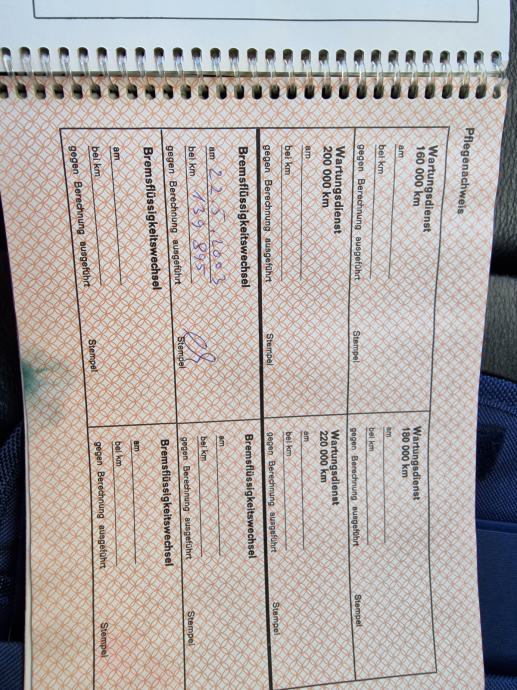 Pflegenachweis
Wartungsdienst
160 000 km
am
bei km
gegen Berechnung ausgeführt
Stempel
Wartungsdienst
180 000 km
am
bei km
gegen Berechnung ausgeführt
Stempel
Wartungsdienst
200 000 km
am
bei km
gegen Berechnung ausgeführt
Stempel
Wartungsdienst
220 000 km
am
bei km
gegen Berechnung ausgeführt
Stempel
Bremsflüssigkeitswechsel
am 22.5.2003
bei km 139 895
gegen Berechnung ausgeführt
Stempel
Bremsflüssigkeitswechsel
am
bei km
gegen Berechnung ausgeführt
Stempel
Bremsflüssigkeitswechsel
am
bei km
gegen Berechnung ausgeführt
Stempel
Bremsflüssigkeitswechsel
am
bei km
gegen Berechnung ausgeführt
Stempel